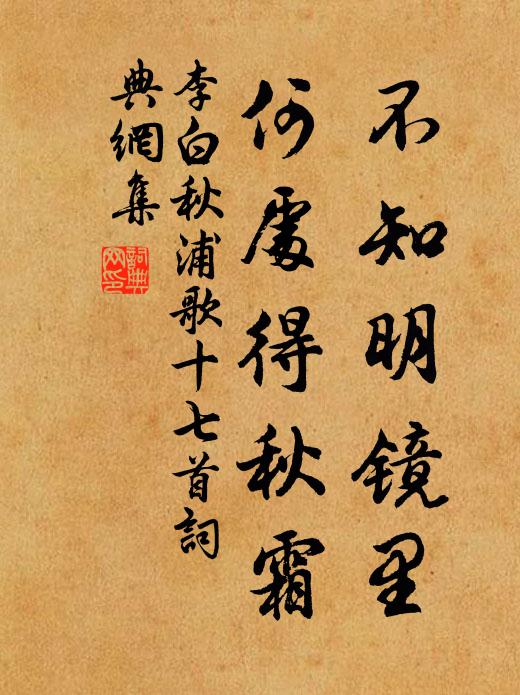 不知明镜里
何處得秋霜
李白秋浦歌十七首詞
典網集
詞典
网印